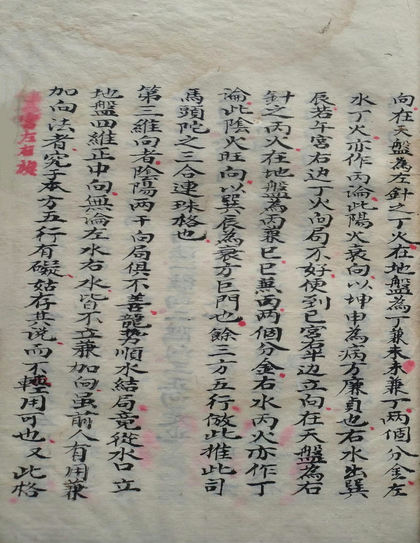 向在天盤為左針之丁火在地盤為丁兼未未兼丁兩個分金左
水丁火亦作丙論此陽火衰向以坤申為病方廉貞也右水出巽
辰若午宮右边丁火向局不好便到巳宮右半边立向在天盤為右
針之丙火在地盤為丙兼巳巳兼丙兩個分金右水丙火亦作丁
論此陰火旺向以巽辰為衰方巨門也餘三方五行倣此推此司
馬頭陀之三合連珠格也
第三維向者陰陽兩干向局俱不善龍勢順水結局竟從水口立
地盤四維正中向無論左水右水皆不立兼加向虽前人有用兼
加向法者究于本方五行有礙姑存其说而不輕用可也又此格
宮左右旋